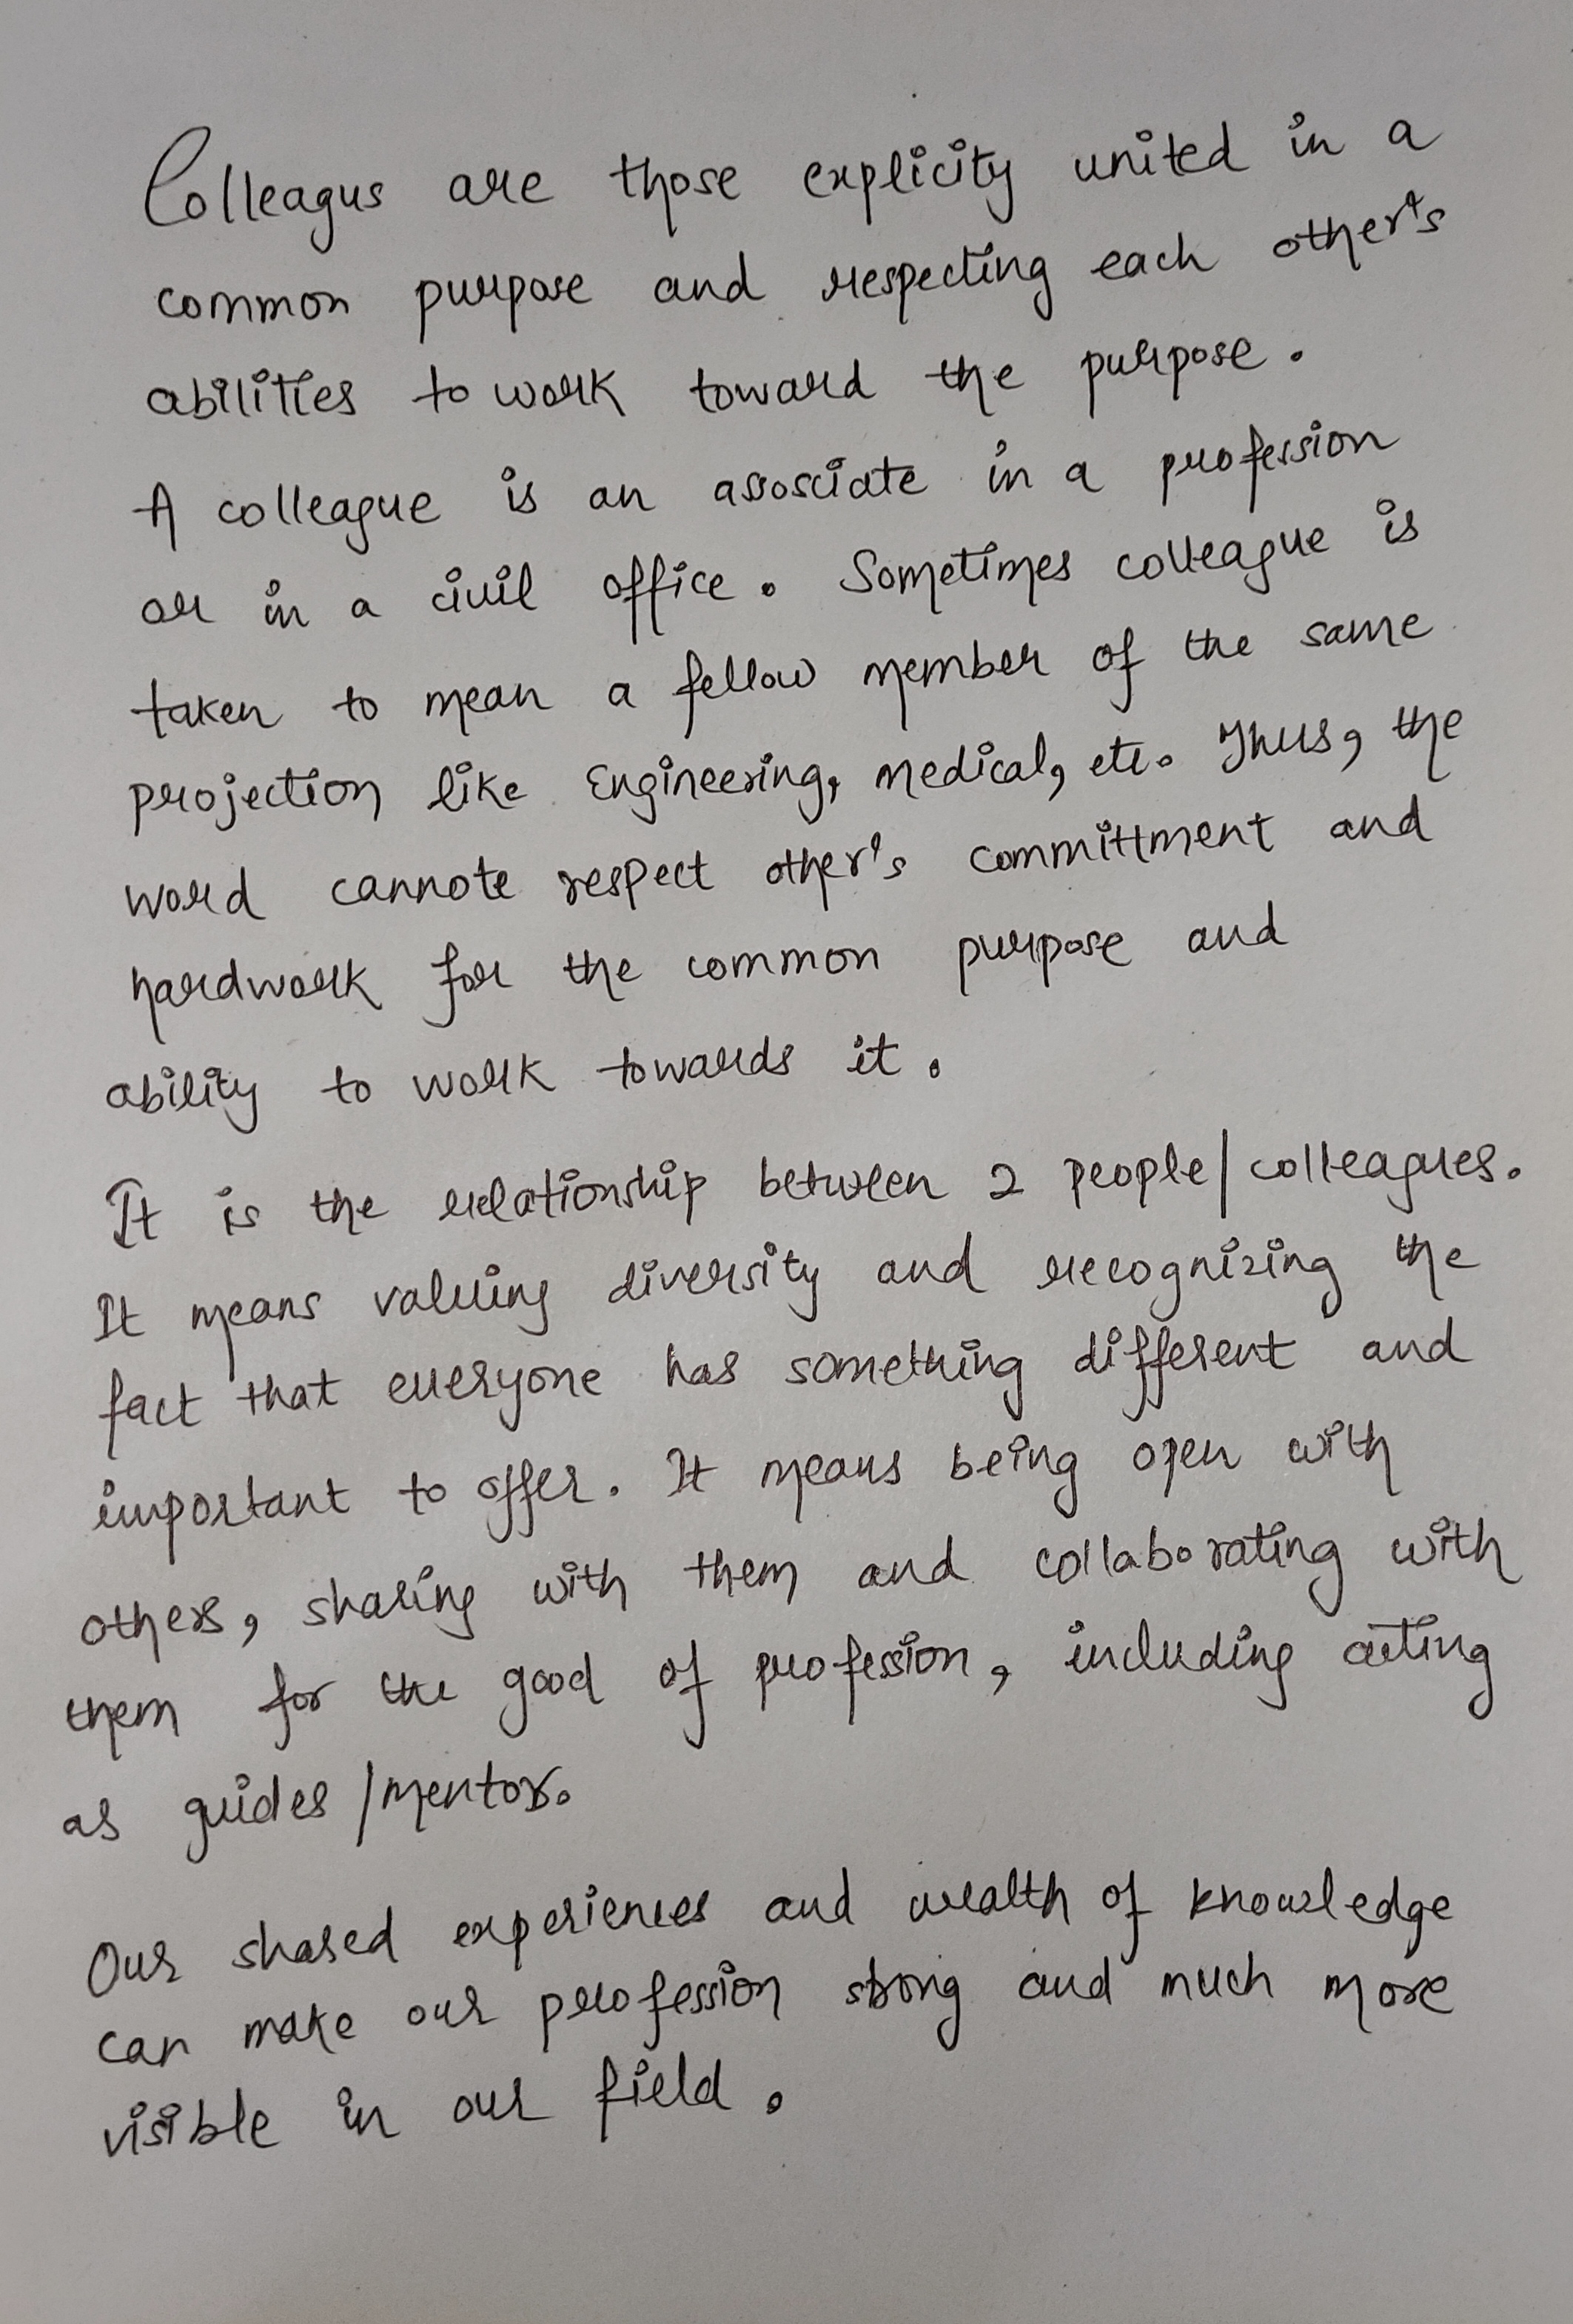 Colleagus are those explicity united in a
common purpose and respecting each other's
abilities to work toward the purpose.
A colleague is an assosciate in a profession
or in a civil office. Sometimes colleague is
taken to mean a fellow member of the same
projection like Engineering, medical, etc. Thus, the
word cannote respect other's committment and
hardwork for the common purpose and
ability to work towards it.
It is the relationship between 2 people/colleagues.
It means valuing diversity and recognizing the
fact that everyone has something different and
important to offer. It means being open with
others, sharing with them and collaborating with
them for the good of profession, including acting
as guides/mentor.
Our shared experiences and wealth of knowledge
can make our profession strong and much more
visible in our field.